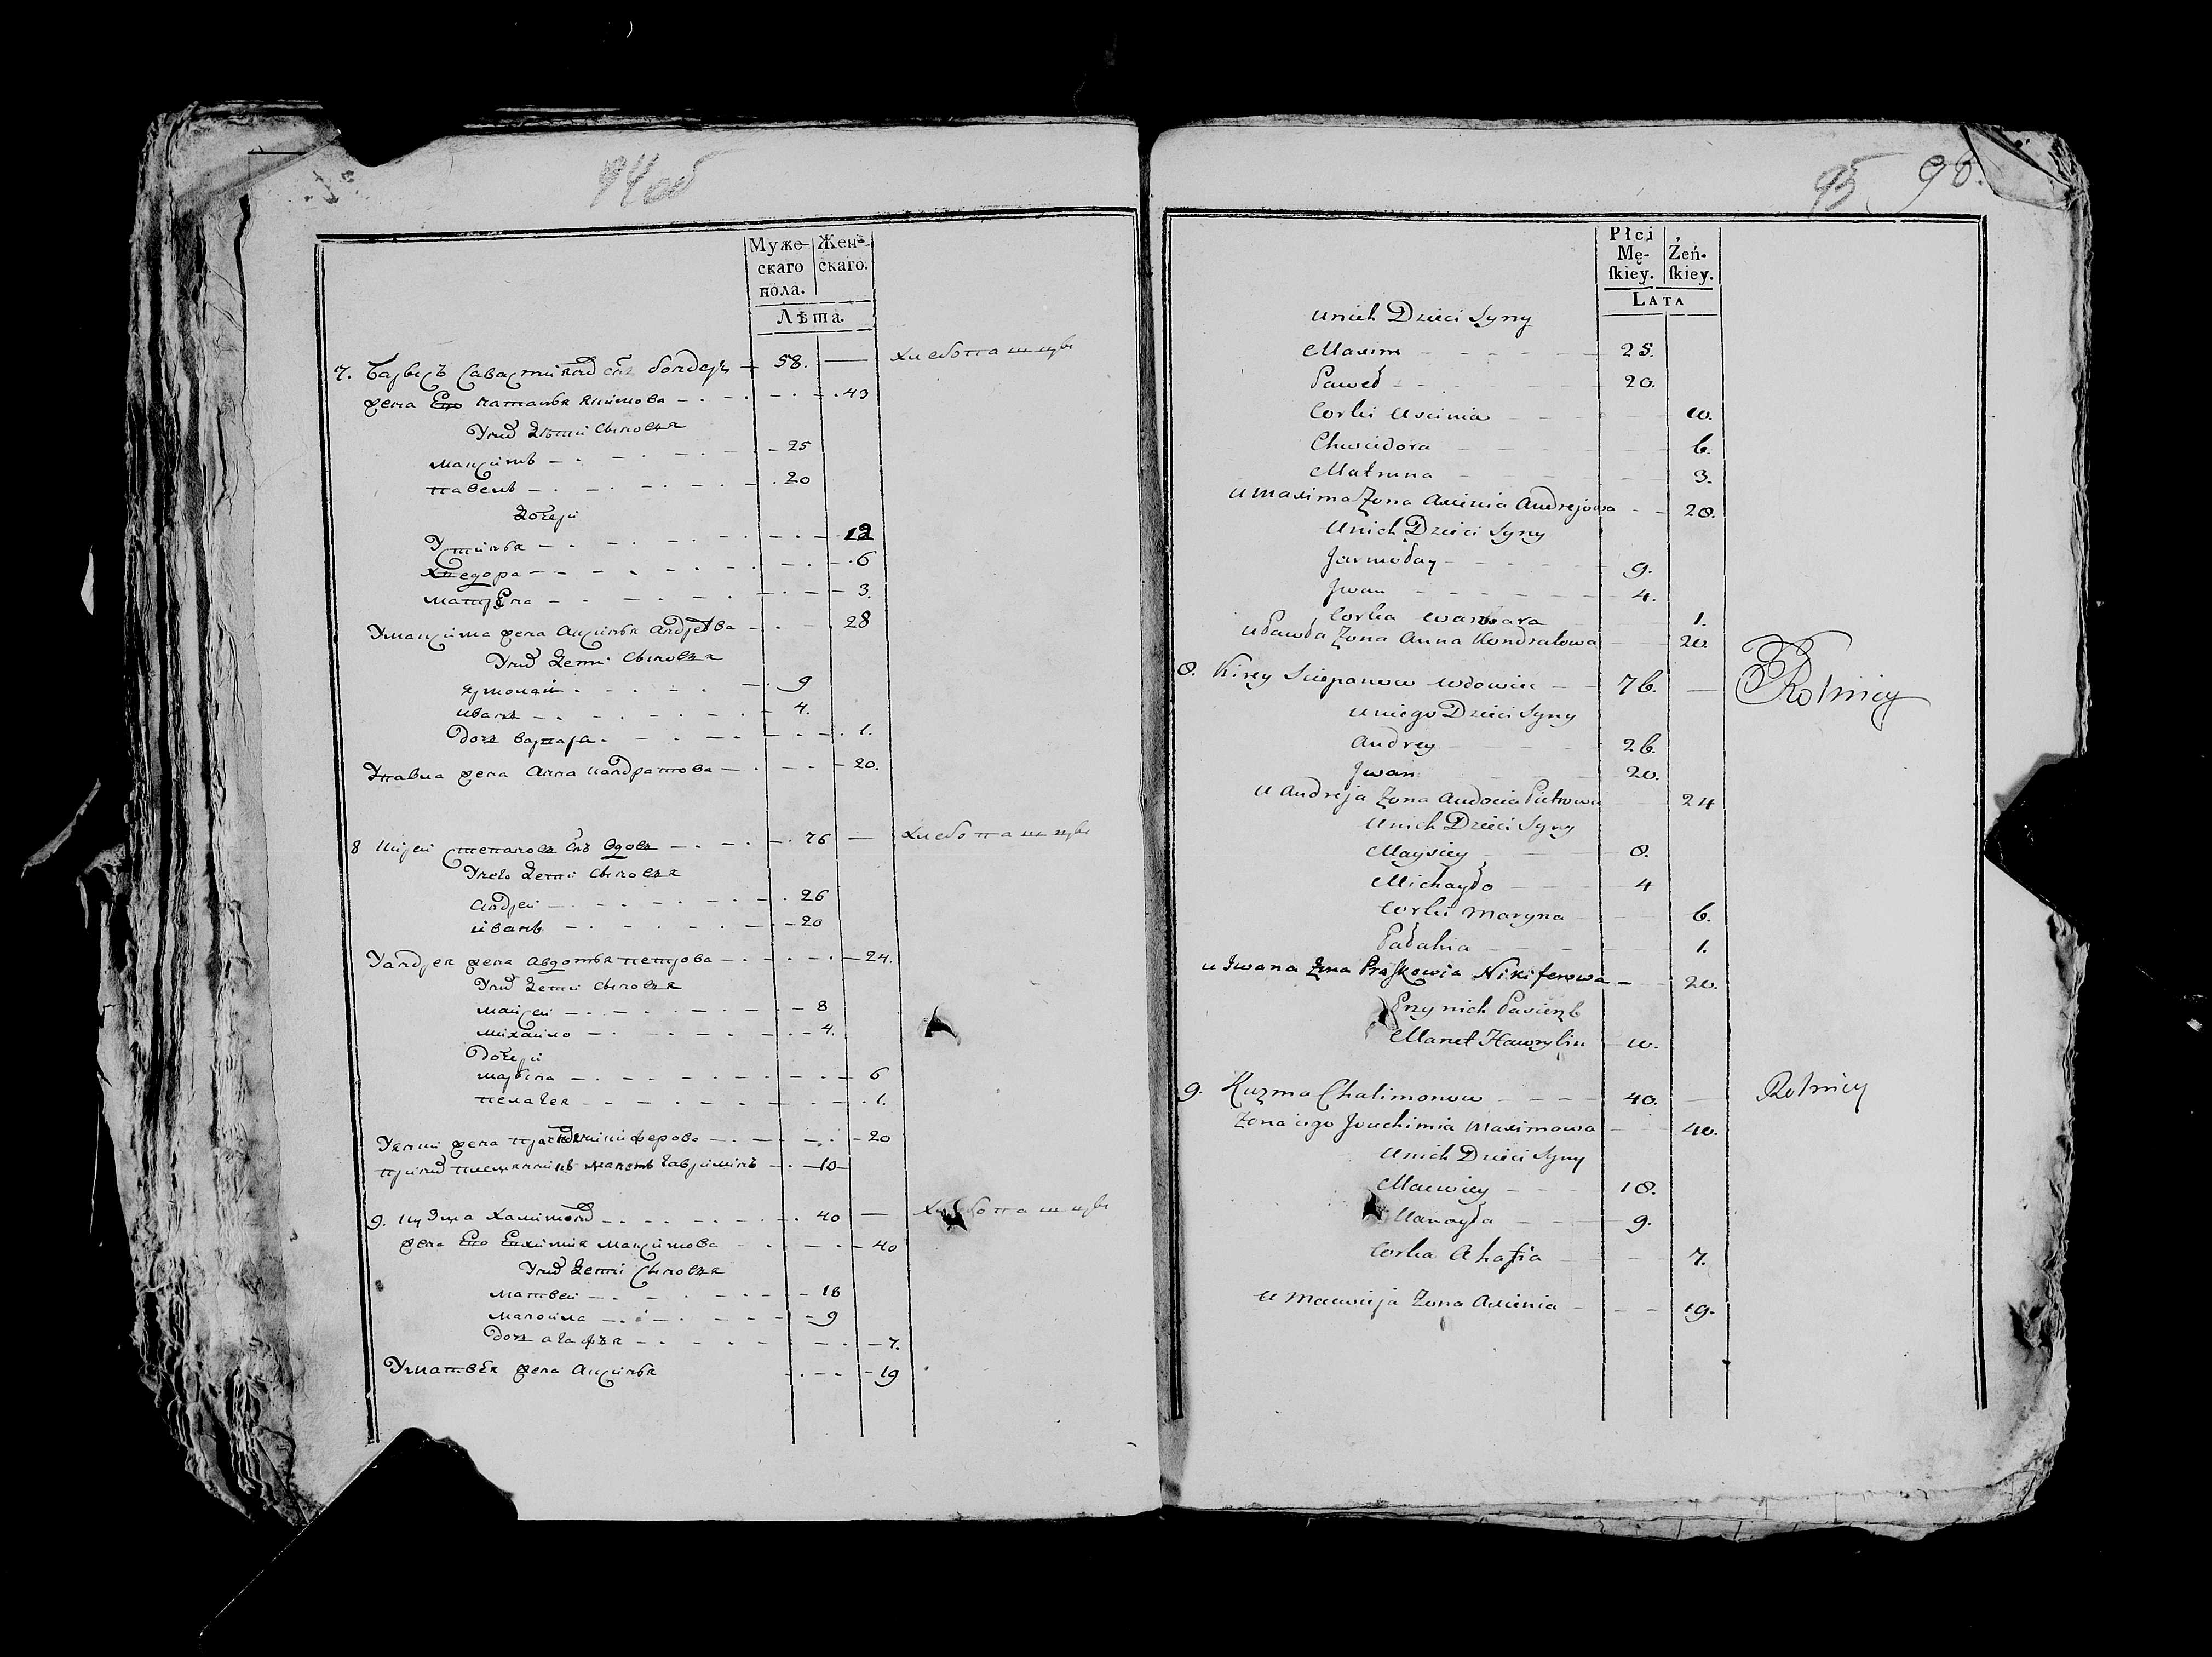 94об
Муже-скаго пола. Жен-скаго.
Лѣта.
7. Савастиянов сн 58. — хлебопашцы
жена Его наталья Климова 43
У них Дѣти Сыновья
максимъ 25
павелъ 20
Дочери
Устинья 12
хведора 6
матрЕна 3.
У максима жена Аксинья Андрѣева 28
У них Дети Сыновья
ярмолай 9
иванъ 4.
Дочь варвара 1.
У павла жена Анна кандратова 20.
8 кирей степановъ снъ вдовъ 76 — хлебопашцы
У нево Дети Сыновья
Андрей 26
иванъ 20
У андрея жена авдотья петрова 24.
У них Дети Сыновья
майсей 8
михайло 4.
Дочери
марьина 6
пелагея 1.
жена никиферова 20
при них племянникъ манетъ гаврилинъ 10
9. кузма халимонов 40 — хлебопашцы
жена Его Ехимия максимова 40
У них Дети Сыновья
матвей 18
манойла 9
Дочь агафья 7.
У матвея жена Аксинья 19
95 96.
Płci Mę-ſkiey. Żeń-ſkiey.
LATA
u nich Dzieci Syny
Maxim 25.
Paweł 20.
Corki Uscinia 10.
Chwiedora 6.
Matruna 3.
u Maxima Zona Axinia Andrejowa 28.
u nich Dzieci Syny
Jarmołay 9.
Jwan 4.
Corka Warwara 1.
u Pawła Zona Anna Kondratowa 20.
8. Kirey Sciepanow wdowiec 76. — Rolnicy
u niego Dzieci Syny
Andrey 26.
Jwan 20.
u Andreja Zona Audocia Pietrowa 24
u nich Dzieci Syny
Maysiey 8.
Michayło 4
Corki Maryna 6.
Pałahia 1.
u Iwana Zona Praſkowia Nikiferowa 20.
Przy nich Pasierzb
Manet Hawrylin 10.
9. Kuzma Chalimonow 40. — Rolnicy
Zona iego Jouchimia Maximowa 40.
u nich Dzieci Syny
Maciwiey 18.
Manoyła 9.
Corka Ahafia 7.
u Maciwieja Zona Axinia 19.